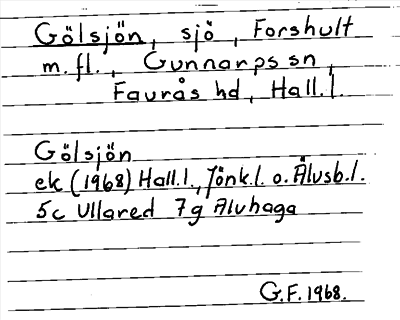 Gölsjön, sjö, Forshult
m.fl., Gunnarps sn,
Faurås hd, Hall.l.
Gölsjön
ek (1968) Hall.l., Jönk.l. o. Älvsb.l.
5c Ullared 7g Alvhaga
G.F. 1968.